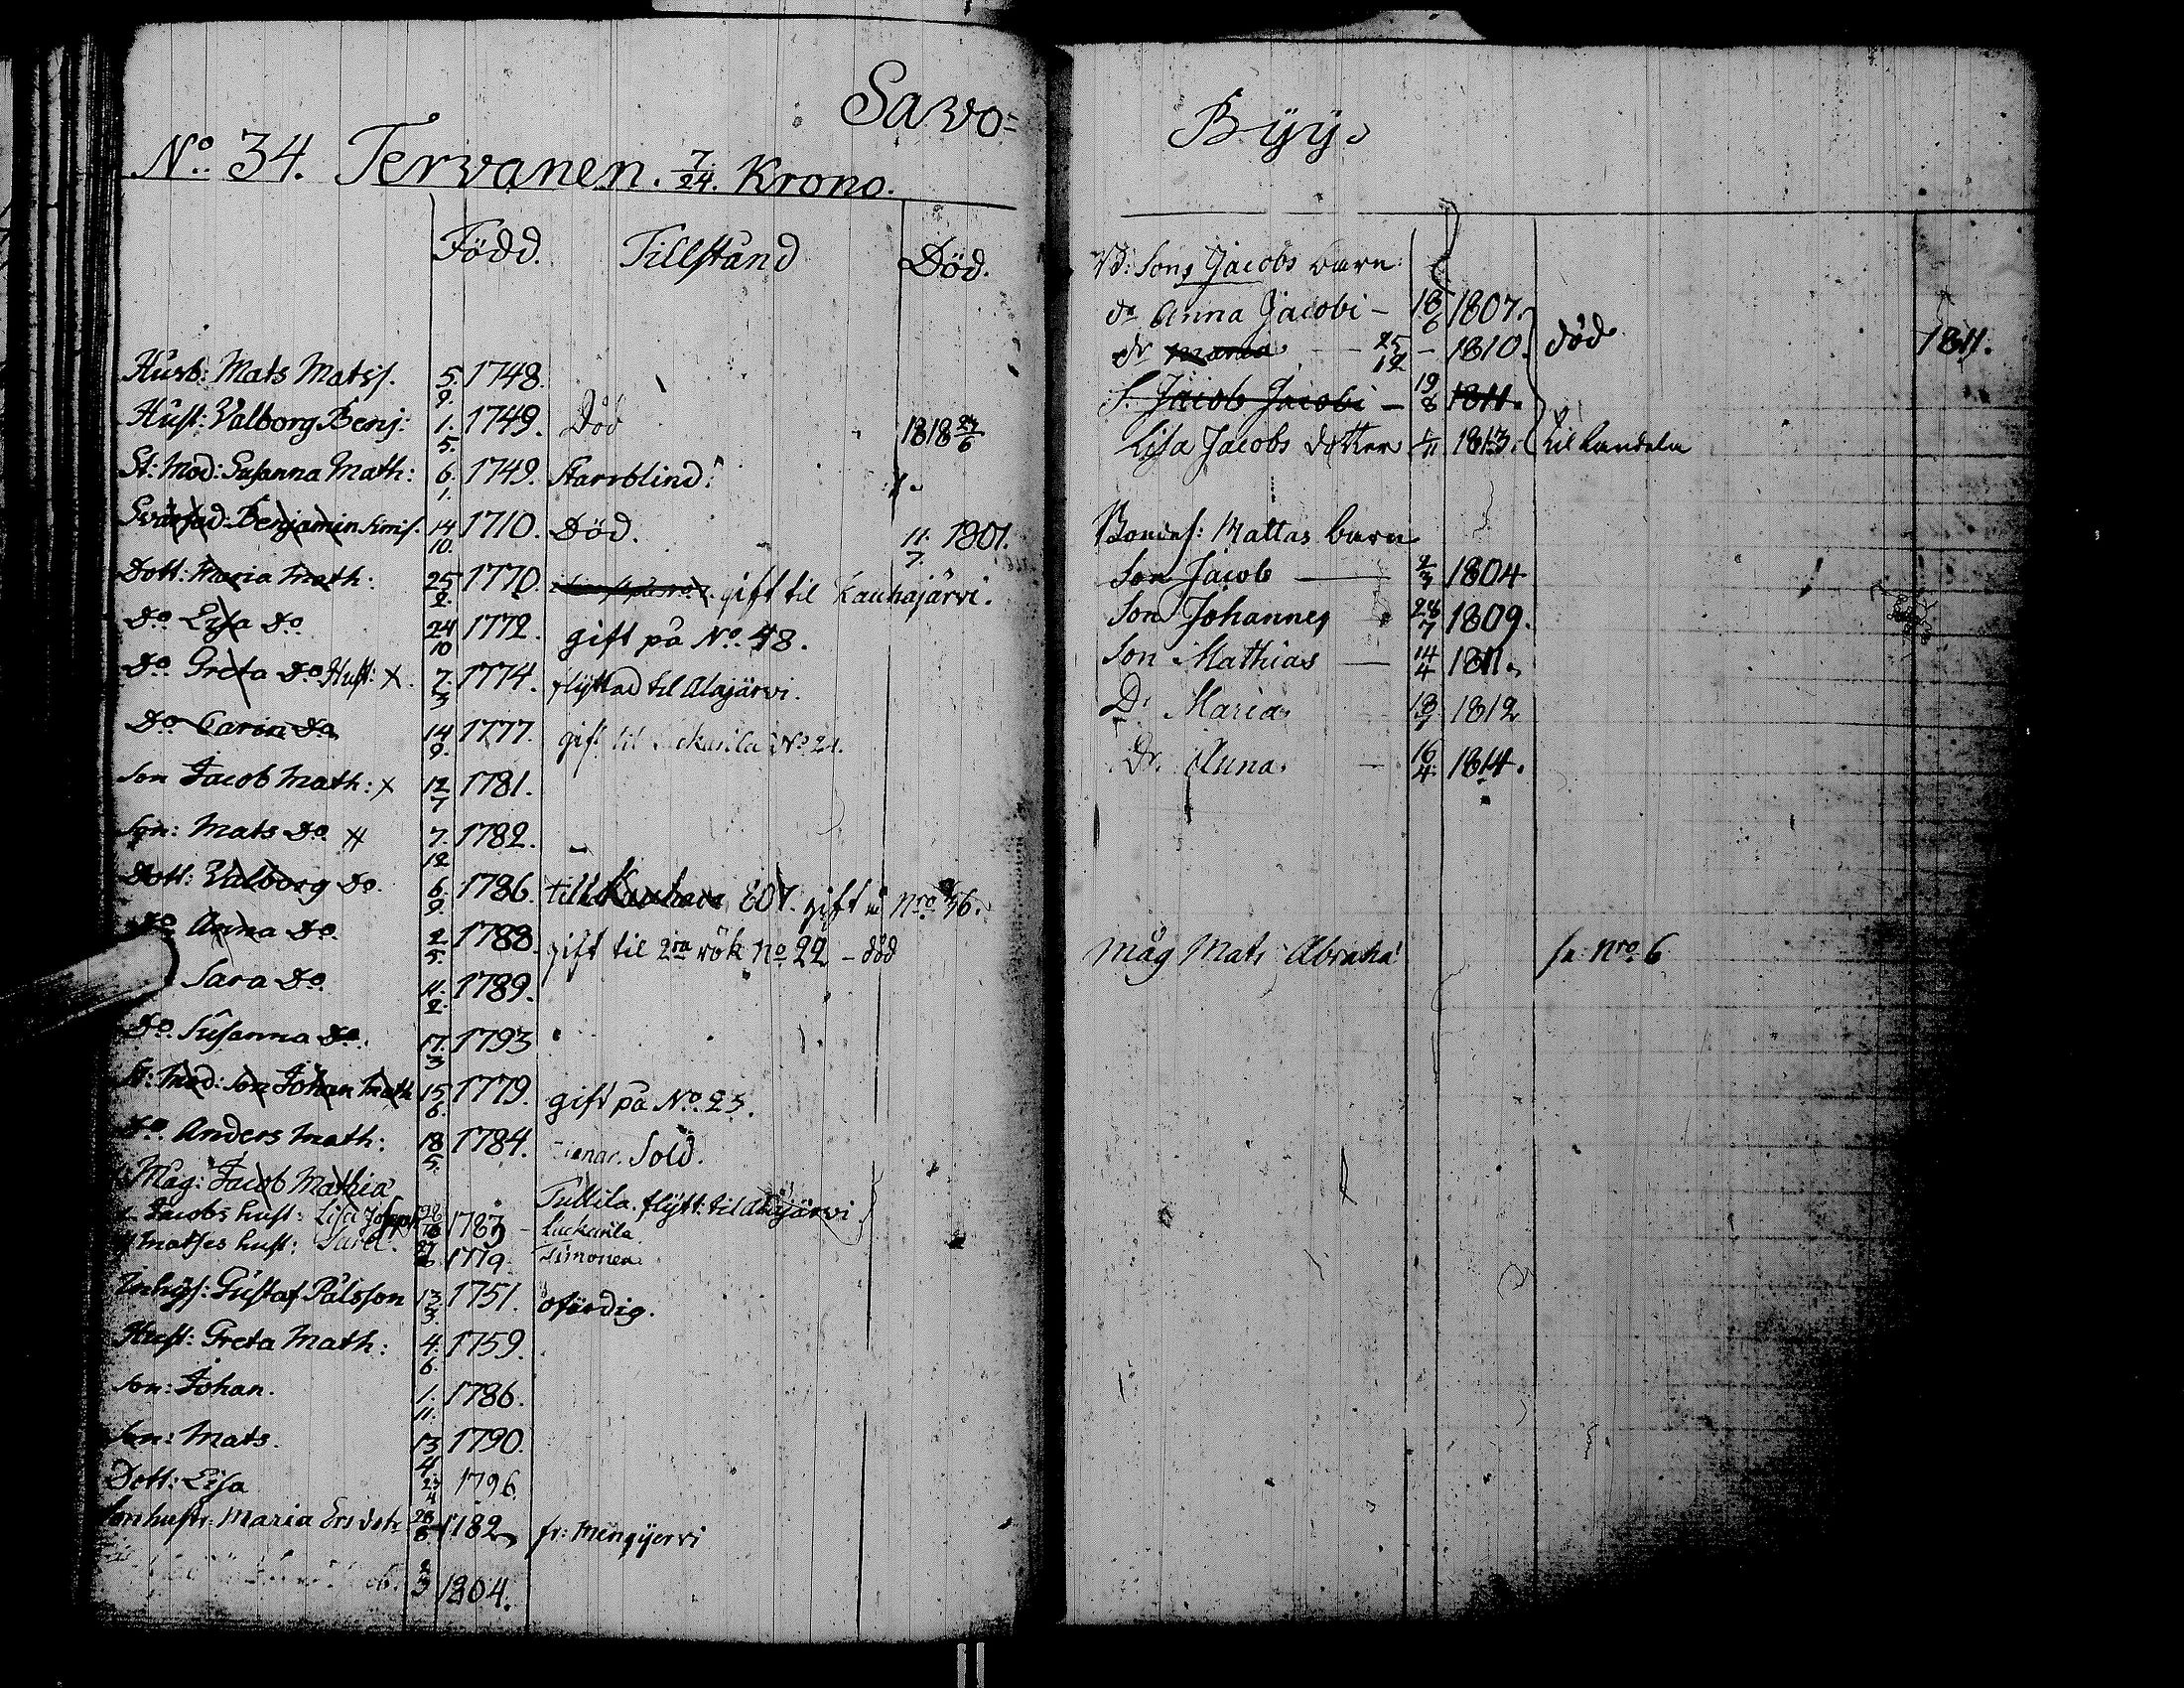 Savo=
No. 34. Tervanen. 7/24. Krono.
Född. Tillstånd Död.
Husb: Mats Matss. 5./9. 1748.
Hust: Valborg Benj: 1./5. 1749. Död 1818 24/6
St: Mod: Susanna Math: 6./1. 1749. Starrblind.
Svärfad: Benjamin Sims. 14/10. 1710. Död. 11./7. 1801.
Dott: Maria Math: 25/2. 1770. gift til Kauhajärvi.
Do Lisa Do 24/10 1772. gift på No. 48.
Do Greta Do Hust: x. 7./3 1774. flyttad til Alajärvi.
Do Carin Do 14/9. 1777. gift til Luckarila No 21.
Son Jacob Math: x 12/7 1781.
Son: Mats Do # 7./12 1782.
Dott: Valborg Do. 6./9. 1786. till Kauhava 807. gift på Nro 36.
Do Anna Do 2/5. 1788. gift til 2ra rök No 22 - död
Sara Do. 11./2. 1789.
Do. Susanna Do. 17./3 1793
St: Mod: Son Johan Math 15/6. 1779. gift på No. 25.
Do. Anders Math: 18/5. 1784. Sold.
Måg: Jacob Mathia Tullila. flytt: til Alajärvi
x Jacobs hust: Lisa Joseph 28/10 1783 - Luckarila
# Matses hust: 27/6 1779. Simonen
Inhys: Gustaf Pålsson 13/3. 1751. ofärdig.
Hust: Greta Math: 4./6. 1759.
Son: Johan. 1./11. 1786.
Son: Mats. 13/4 1790.
Dott: Lisa 23/4 1796.
Sonhustr: Maria Ers dotr 28/8. 1782 fr: Menqyervi
2/3 1804.
Byy.
Vd: Sons Jacobs barn:
dr Anna Jacobi - 18/6 1807.
dr Maria - 25/12 - 1810. död 1811.
S. Jacob Jacobi - 19/8 1811.
Lisa Jacobs dotter 1813.
Bondes: Mattas barn
Son Jacob 2/3 1804
Son Johannes 28/7 1809.
Son Mathias 14/4 1811.
Dr Maria 1812
Dr. Anna. 16/4. 1814.
Måg Mats Abraha se Nro. 6